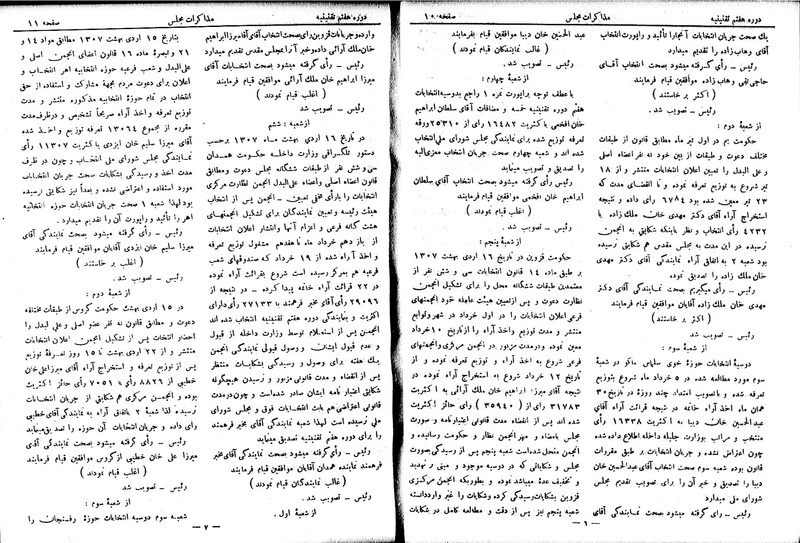 دوره هفتم تقنینیه
مذاکرات مجلس
صفحه ۱۰
یك صحت جریان انتخابات آنجا را تأئید و راپورت انتخاب
آقای وهاب زاده را تقدیم میدارد
رئیس ـ رأی گرفته میشود بصحت انتخاب آقای
حاجی تقی وهاب زاده موافقین قیام فرمایند
( اکثر بر خاستند )
رئیس ـ تصویب شد .
از شعبهٔ دوم :
حکومت بم در اول تیر ماه مطابق قانون از طبقات
مختلف دعوت و طبقات از بین خود نه نفر اعضاء اصلی
و علی البدل را تعیین اعلان انتخابات منتشر و از ۱۸
تیر شروع به توزیع تعرفه نموده و تا انقضای مدت که
۲۳ تیر معین شده بود ۶۷۸۴ رای داده و نتیجه
استخراج آراء آقای دکتر مهدی خان ملك زاده با
۴۲۳۲ رأی انتخاب و نظر باینکه شکایتی به انجمن
نرسیده در این مدت به مجلس مقدس هم شکایتی نرسیده
بود شعبه ۲ به اتفاق آراء نمایندگی آقای دکتر مهدی
خان ملك زاده را تصدیق نموده
رئیس ـ رأی میگیریم بصحت نمایندگی آقای دکتر
مهدی خان ملك زاده آقایان موافقین قیام فرمایند
( اکثر بر خاستند )
رئیس ـ تصویب شد .
از شعبهٔ سوم :
دوسیهٔ انتخابات حوزهٔ خوی سلماس ماکو در شعبهٔ
سوم مورد مطالعه شده در ۵ خرداد ماه شروع بتوزیع
تعرفه شده و باتصویب امتداد چند روزهٔ در تاریخ ۳۰
همان ماه اخذ آراء خاتمه در نتیجه قرائت آراء آقای
عبدالحسین خان دیبا به اکثریت ۱۶۳۳۸ رأی
منتخب و مراتب بوزارت جلیله داخله اطلاع داده شده
چون اعتراض نشده و جریان انتخابات بر طبق مقررات
قانون بوده شعبه سوم صحت انتخاب آقای عبدالحسین خان
دیبا را تصدیق و خبر آن را برای تصویب تقدیم مجلس
شورای ملی میدارد
رئیس ـ رای گرفته میشود بصحت نمایندگی آقای
عبد الحسین خان دیبا موافقین قیام بفرمایند
( غالب نمایندگان قیام نمودند )
رئیس ـ تصویب شد .
از شعبهٔ چهارم :
با عطف توجه براپورت نمره ۱ راجع بدوسیه انتخابات
هفتم دوره تقنینیه خمسه و مضافات آقای سلطان ابراهیم
خان افخمی با کثریت ۱۶۴۸۲ رأی از ۲۵۳۱۰ ورقه
تعرفه توزیع شده برای نمایندگی مجلس شورای ملی انتخاب
شده اند و شعبه چهارم صحت جریان انتخاب معزی الیه
را تصدیق و تصویب مینماید
رئیس ـ رأی گرفته میشود بصحت انتخاب آقای سلطان
ابراهیم خان افخمی موافقین قیام فرمایند
( اغلب قیام نمودند )
رئیس ـ تصویب شد .
از شعبهٔ پنجم :
حکومت قزوین در تاریخ ۱۶ اردی بهشت ۱۳۰۷
بر طبق ماده ۱۴ قانون انتخابات سی و شش نفر از
معتمدین طبقات ششگانه محل را برای تشکیل انجمن
نظارت دعوت و پس از تعیین هیئت عامله خود انجمنهای
فرعی اعلان انتخابات را در اول خرداد در شهر و توابع
منتشر و مدت توزیع و اخذ آراء را از تاریخ ۱۰ خرداد
معین نموده و در مدت مزبور در انجمن مرکزی و انجمنهای
فرعی شروع به اخذ آراء و توزیع تعرفه نموده و از
تاریخ ۱۲ خرداد شروع به استخراج آراء نموده در
نتیجه آقای میرزا ابراهیم خان ملك آرائی به اکثریت
۳۱۷۸۳ رای از ( ۳۵۹۴۰ ) رای حائز اکثریت
شده اند پس از انقضاء مدت قانونی اعتبارنامه و صورت
مجلس بامضاء و مهر انجمن نظار و حکومت رسانیده و
انجمن منحل شده است شعبه پنجم پس از رسیدگی بصورت
مجلس و شکایاتی که در دوسیه موجود و مبنی بر تهدید
و تخفیف عدهٔ میباشد نموده و بطوریکه انجمن مرکزی
قزوین بشکایات رسیدگی کرده و شکایات را غیر وارد دانسته
شعبه پنجم نیز پس از دقت و مطالعه کامل در شکایات
ـ ۶ ـ
دوره هفتم تقنینیه
مذاکرات مجلس
صفحه ۱۱
وارده و جریانات قزوین رای صحت انتخاب آقای آقا میرزا ابراهیم
خان ملك آرائی داده و خبر آنرا بمجلس مقدس تقدیم میدارد
رئیس ـ رأی گرفته میشود بصحت انتخابات آقای
میرزا ابراهیم خان ملك آرائی موافقین قیام فرمایند
( اغلب قیام نمودند )
رئیس ـ تصویب شد
از شعبه : ششم
در تاریخ ۱۶ اردی بهشت مـاه ۱۳۰۷ برحسب
دستور تلگرافی وزارت داخله حکومت همدان
سی و شش نفر از طبقات ششگانه مجلس دعوت و مطابق
قانون اعضاء اصلی و اعضاء علی البدل انجمن نظارت مرکزی
انتخابات را با رأی مخفی تعیین ـ انجمن پس از انتخاب
هیئت رئیسه و تعیین نمایندگان برای تشکیل انجمنهای
هشت گانه فرعی و اعزام آنها وانتشار اعلان انتخابات
از یاز دهم خرداد ماه تا هفدهم مشغول توزیع تعرفه
و اخذ آراء شده از ۱۹ خرداد که صندوقهای شعب
فرعیه هم بمرکز رسیده است شروع بقرائت آراء نموده
در ۲۲ قرائت آراء خاتمه پیدا کرده ـ در نتیجه از
۲۹۰۹۶ رأی آقای مخبر فرهمند با ۲۲۱۳۳ رأی دارای
اکثریت و بنمایندگی دوره هفتم تقنینیه انتخاب شده اند
انجمن پس از استعلام توسط وزارت داخله از قبول
و عدم قبول ایشان و وصول قبولی نمایندگی انجمن
یك هفته برای وصول و رسیدگی بشکایات منتظر
پس از انقضاء و مدت قانونی مزبور و نرسیدن هیچگونه
شکایتی اعتبار نامه ایشان صادر شده است و چون در مدت
قانونی اعتراضی هم بابت انتخابات فوق و مجلس شورای
ملی نرسیده است لهذا شعبه نمایندگی آقای مخبر فرهمند
را برای دوره هفتم تقنینیه تصدیق مینماید
رئیس ـ رأی گرفته میشود بصحت نمایندگی آقای مخبر
فرهمند نماینده همدان آقایان موافقین قیام فرمایند
( غالب نمایندگان قیام نمودند )
رئیس ـ تصویب شد .
از شعبهٔ اول .
بتاریخ ۱۵ اردی بهشت ۱۳۰۷ مطابق مواد ۱۴ و
۲۱ و تبصرهٔ ماده ۱۶ قانون اعضای انجمن اصلی و
علی البدل و شعب فرعیه حوزه انتخابیه اهر انتخاب و
اعلان برای دعوت مردم بجهة مشارکت و استفاده از حق
انتخاب در تمام حوزهٔ انتخابیه مذکوره منتشر و مدت
توزیع تعرفه و اخذ آراء صریحاً تشخیص و در ظرف مدت
مقرره از مجموع ۱۳۰۶۴ تعرفه توزیع و اخذ شده
آقای میرزا سلیم خان ایزدی با کثریت ۱۱۳۰۷ رأی
نمایندگی مجلس شورای ملی انتخاب و چون در ظرف
مدت اخذ و رسیدگی بشکایات صحت جریان انتخابات
مورد استفاده و اعتراضی شده و بعداً نیز شکایتی نرسیده
بود لهذا شعبه ۱ صحت جریان انتخابات حوزه انتخابیه
اهر را تأئید و راپورت آن را تقدیم میدارد .
رئیس ـ رأی گرفته میشود بصحت نمایندگی آقای
میرزا سلیم خان ایزدی آقایان موافقین قیام فرمایند
( اغلب بر خاستند )
رئیس ـ تصویب شد .
از شعبه دوم :
در ۱۵ اردی بهشت حکومت کروس از طبقات مختلفه
دعوت و مطابق قانون نه نفر عضو اصلی و علی البدل را
احضار انتخاب پس از تشکیل انجمن اعلان انتخابات
منتشر و از ۲۲ اردی بهشت تا ۱۵ روز تعرفهٔ توزیع
شده پس از استخراج آراء آقای میرزا علی خان
خطیبی از ۸۸۲۶ رأی با ۷۰۵۱ رأی حائز اکثریت
بوده و انجمن مرکزی هم شکایتی از جریان انتخابات
نرسیده لذا شعبهٔ ۲ باتفاق آراء به نمایندگی آقای خطیبی
رای داده و جریان انتخابات آن حوزه را تصدیق مینماید
رئیس ـ رأی گرفته میشود بصحت نمایندگی آقای
میرزا علی خان خطیبی از کروس موافقین قیام فرمایند
( اغلب قیام نمودند )
رئیس ـ تصویب شد .
از شعبهٔ سوم :
شعبه سوم دوسیه انتخابات حوزهٔ رفسنجان را
ـ ۷ ـ